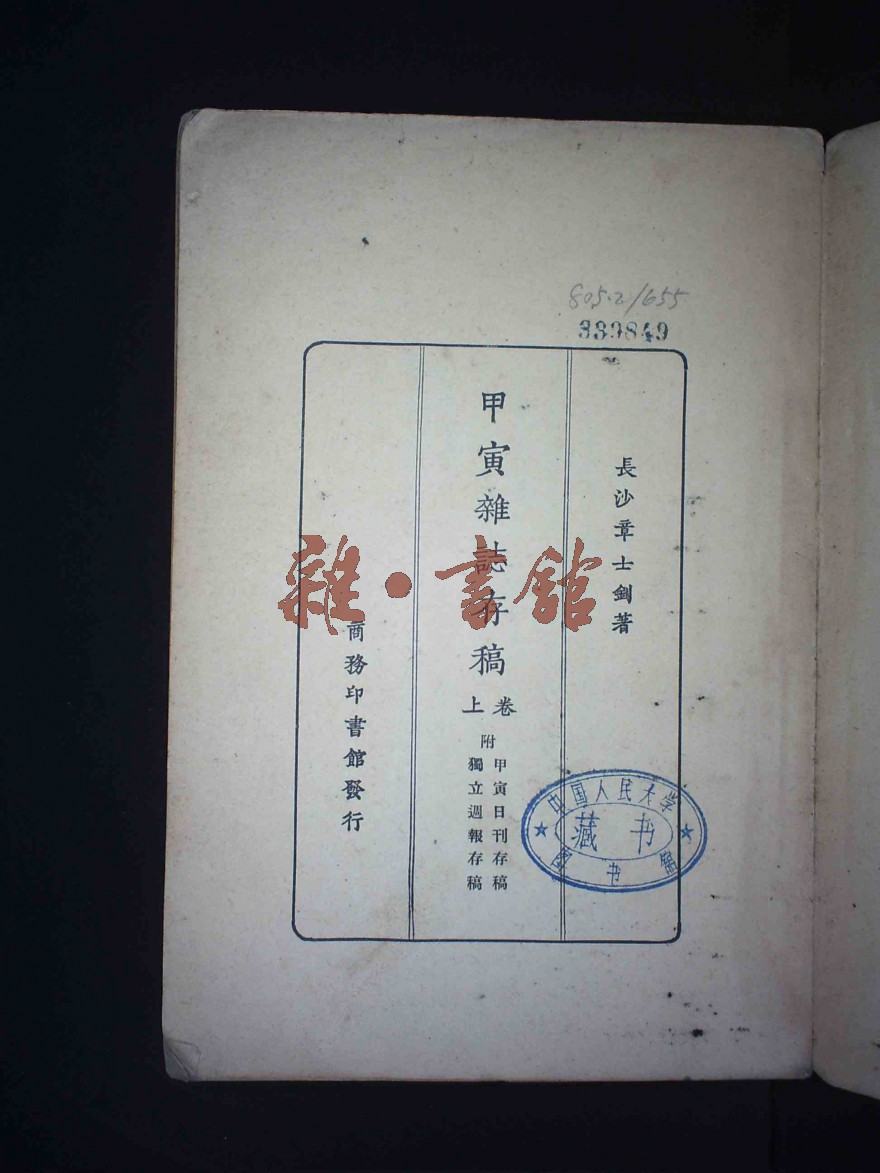 805.2/655
339849
長沙章士釗著
甲寅雜誌存稿
卷上
附
甲寅日刊存稿
獨立週報存稿
商務印書館發行
雜·書館
中国人民大学
藏书
图书馆